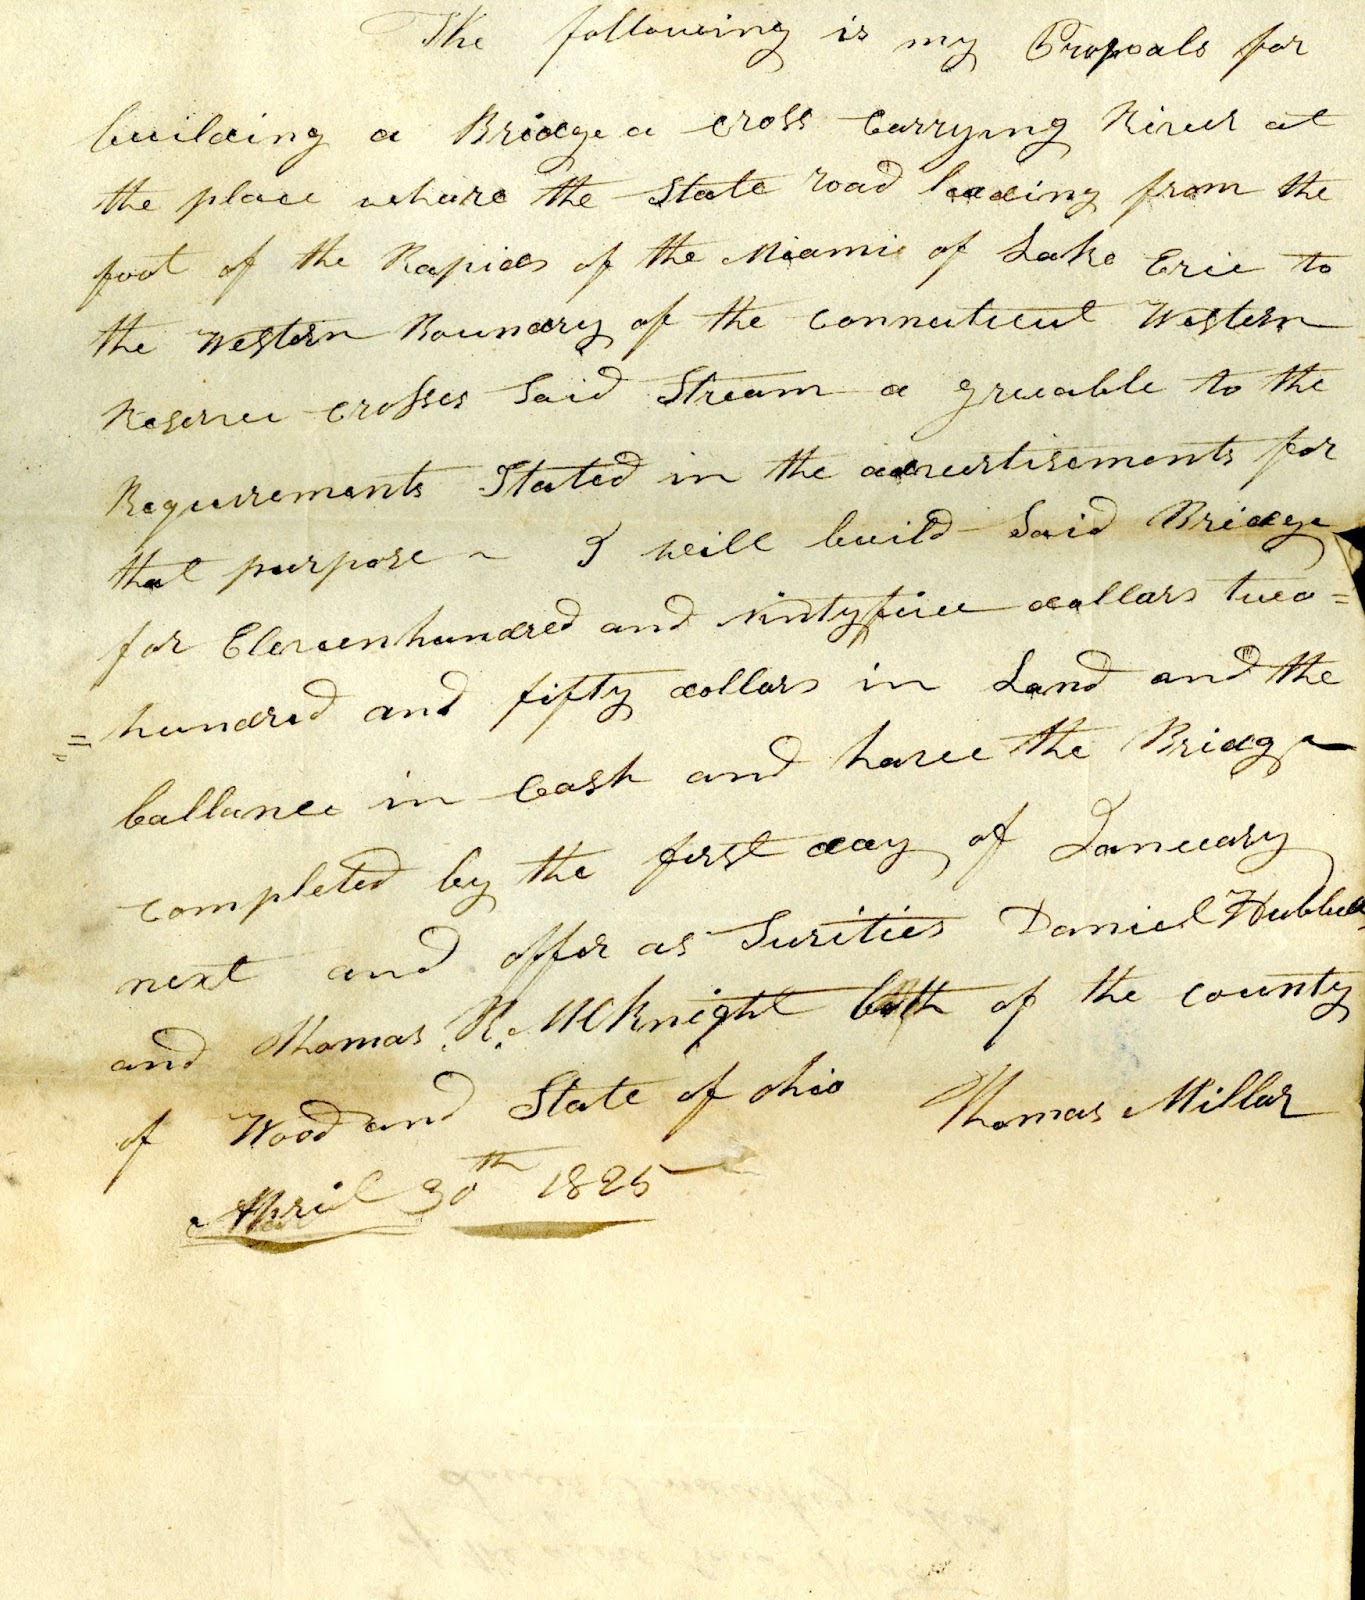 The following is my Proposals for
building a Bridge a cross Carrying River at
the place where the State road leading from the
foot of the Rapids of the Miami of Lake Erie to
the Western Boundary of the Connecticut Western
Reserve crosses Said Stream a greeable to the
Requirements Stated in the advertisements for
that purpose ~ I will build Said Bridge
for Eleven hundred and Nintyfive dollars two=
=hundred and fifty dollars in Land and the
ballance in Cash and have the Bridge
completed by the first day of January
next and offer as Surities Daniel Hubbell
and Thomas R. McKnight both of the county
of Wood and State of Ohio Thomas Millar
April 30th 1825